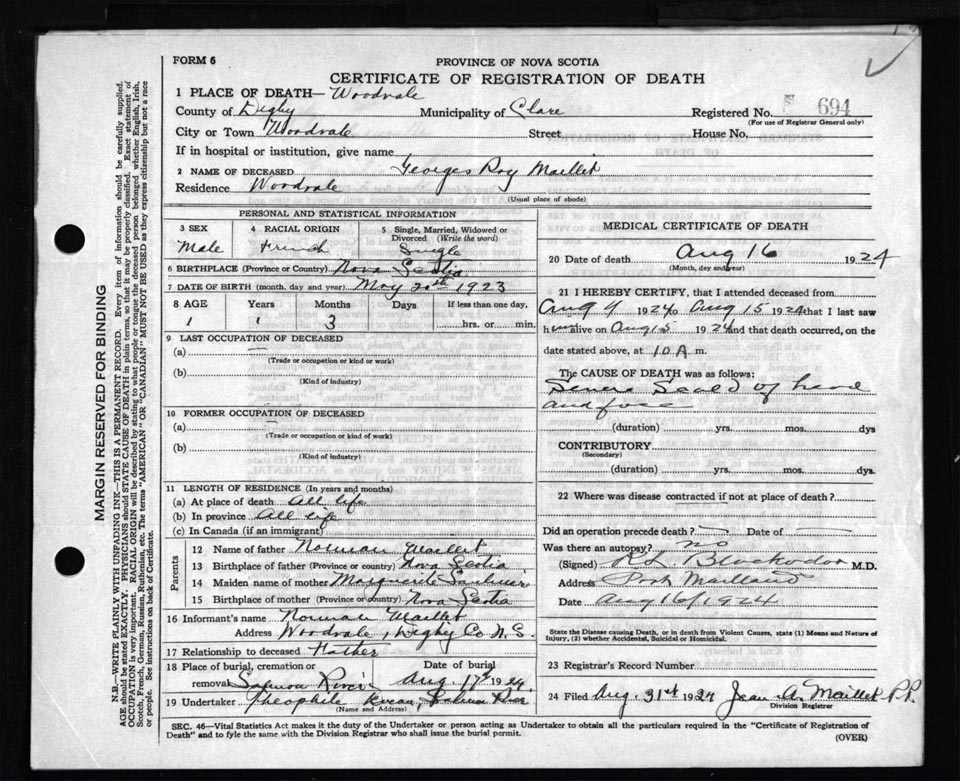 FORM 6
PROVINCE OF NOVA SCOTIA
CERTIFICATE OF REGISTRATION OF DEATH
1 PLACE OF DEATH— Woodvale
County of Digby Municipality of Clare Registered No. 694
(For use of Registrar General only)
City or Town Woodvale Street House No.
If in hospital or institution, give name
2 NAME OF DECEASED Georges Roy Maillet
Residence Woodvale
(Usual place of abode)
PERSONAL AND STATISTICAL INFORMATION
3 SEX
Male
4 RACIAL ORIGIN
French
5 Single, Married, Widowed or Divorced (Write the word)
Single
6 BIRTHPLACE (Province or Country) Nova Scotia
7 DATE OF BIRTH (month, day and year) May 20th 1923
8 AGE Years Months Days If less than one day,
1 3 hrs. or min.
9 LAST OCCUPATION OF DECEASED
(a) —
(Trade or occupation or kind or work)
(b)
(Kind of industry)
10 FORMER OCCUPATION OF DECEASED
(a) —
(Trade or occupation or kind of work)
(b)
(Kind of industry)
11 LENGTH OF RESIDENCE (In years and months)
(a) At place of death All life
(b) In province All life
(c) In Canada (if an immigrant)
Parents
12 Name of father Norman Maillet
13 Birthplace of father (Province or Country) Nova Scotia
14 Maiden name of mother Marguerite
15 Birthplace of mother (Province or country) Nova Scotia
16 Informant's name Norman Maillet
Address Woodvale, Digby Co N.S.
17 Relationship to deceased Father
18 Place of burial, cremation or removal Salmon River
Date of burial Aug 17th 1924
19 Undertaker Theophile
(Name and Address)
MEDICAL CERTIFICATE OF DEATH
20 Date of death Aug 16 1924
(Month, day and year)
21 I HEREBY CERTIFY, that I attended deceased from
Aug 9 1924 to Aug 15 1924 that I last saw
him alive on Aug 15 1924 and that death occurred, on
date stated above, at 10 A m.
The CAUSE OF DEATH was as follows:
Severe Scald of head
and face
(duration) yrs. mos. dys
CONTRIBUTORY
(Secondary)
(duration) yrs. mos. dys.
22 Where was disease contracted if not at place of death?
Did an operation precede death? — Date of —
Was there an autopsy? no
(Signed) M.D.
Address Port Maitland
Date Aug 16/1924
State the Disease causing Death, or in death from Violent Causes, state (1) Means and Nature of
Injury, (2) whether Accidental, Suicidal or Homicidal.
23 Registrar's Record Number
24 Filed Aug. 31st 1924 Jean A. Maillet P.P.
Division Registrar
SEC. 46—Vital Statistics Act makes it the duty of the Undertaker or person acting as Undertaker to obtain all the particulars required in the "Certificate of Registration of
Death" and to fyle the same with the Division Registrar who shall issue the burial permit.
(OVER)
MARGIN RESERVED FOR BINDING
N.B.—WRITE PLAINLY WITH UNFADING INK—THIS IS A PERMANENT RECORD. Every item of information should be carefully supplied.
AGE should be stated EXACTLY. PHYSICIANS should STATE CAUSE OF DEATH in plain terms, so that it may be properly classified. Exact statement of
OCCUPATION is very important. RACIAL ORIGIN will be described by stating to what people or tongue the deceased person belonged whether English, Irish,
Scotch, French, German, Russian, Ruthenian, etc. The terms "AMERICAN" OR "CANADIAN" MUST NOT BE USED as they express citizenship but not a race
or people. See instructions on back of Certificate.